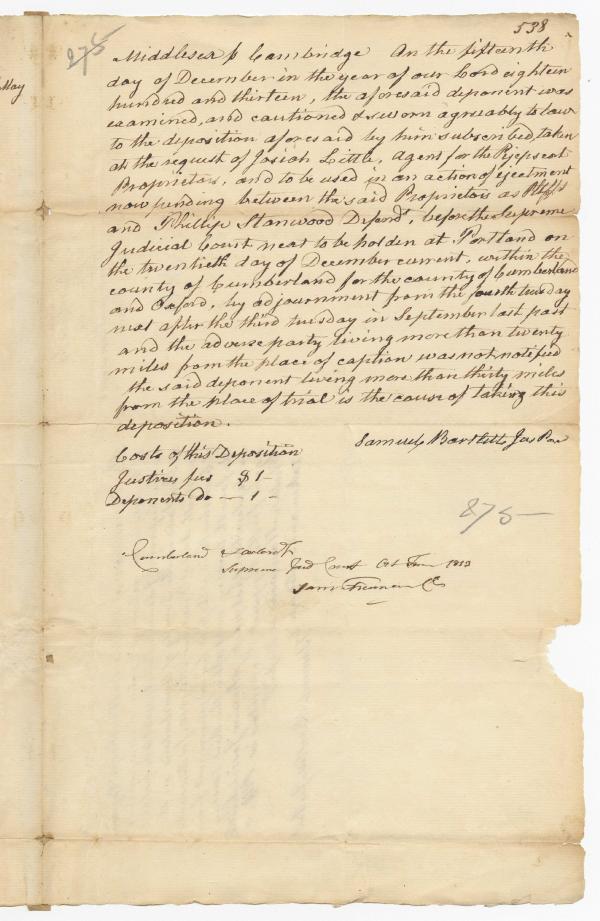 538
275
May
Middlesex ss Cambridge On the fifteenth
day of December in the year of our Lord eighteen
hundred and thirteen, the aforesaid deponent was
examined, and cautioned & sworn agreeably to law
to the deposition aforesaid by him subscribed, taken
at the request of Josiah Little, Agent for the Pejepscot
Proprietors, and to be used in an action of ejectment
now pending between the said Proprietors as Pltffs
and Phillip Stanwood Defendt, before the Supreme
Judicial Court next to be holden at Portland on
the twentieth day of December current, within the
county of Cumberland for the county of Cumberland
and Oxford, by adjournment from the fourth tuesday
next after the third tuesday in September last past
and the adverse party living more than twenty
miles from the place of caption was not notified
the said deponent living more than thirty miles
from the place of trial is the cause of taking this
deposition.
Samuel Bartlett Jus Pac
Costs of this Deposition
Justices fees $1 -
Deponents do - 1 -
275 -
Cumberland &
Supreme Jud Court Oct Term 1813
Sam Freeman Ck